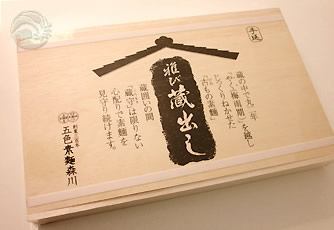 手延
蔵の中で丸一年
「やく」(梅雨期)を越し
じっくりねかせた
「古」もの素麺
雅び
蔵出し
蔵囲いの間
「蔵守」は限りない
心配りで素麺を
見守り続けます。
五色素麺森川